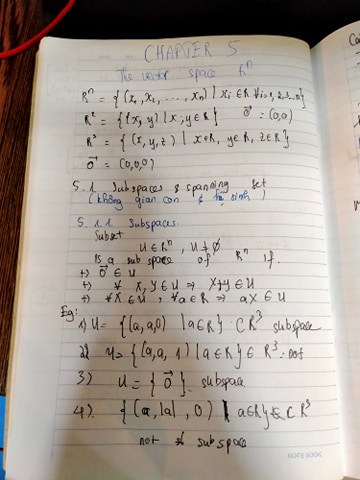 CHAPTER 5
The vector space Rⁿ
Rⁿ = {(x₁, x₂, ..., xₙ) | xᵢ ∈ R ∀i=1,2,3...n}
R² = {(x, y) | x, y ∈ R} 0⃗ : (0,0)
R³ = {(x, y, z) | x ∈ R, y ∈ R, z ∈ R}
0⃗ = (0,0,0)
5.1 Subspaces & spanning set
(không gian con & hệ sinh)
5.1.1 Subspaces.
Subset
U ∈ Rⁿ, U ≠ ∅
Is a subspace of Rⁿ if.
+) 0⃗ ∈ U
+) ∀ X, Y ∈ U ⇒ X+Y ∈ U
+) ∀X ∈ U, ∀a ∈ R ⇒ aX ∈ U
Eg:
1) U = {(a, a, 0) | a ∈ R} ⊂ R³ subspace
2) U = {(a, a, 1) | a ∈ R} ∈ R³: not
3) U = {0⃗} subspace
4) {(a, |a|, 0) | a ∈ R} ⊂ R³
not subspace
NOTE BOOK